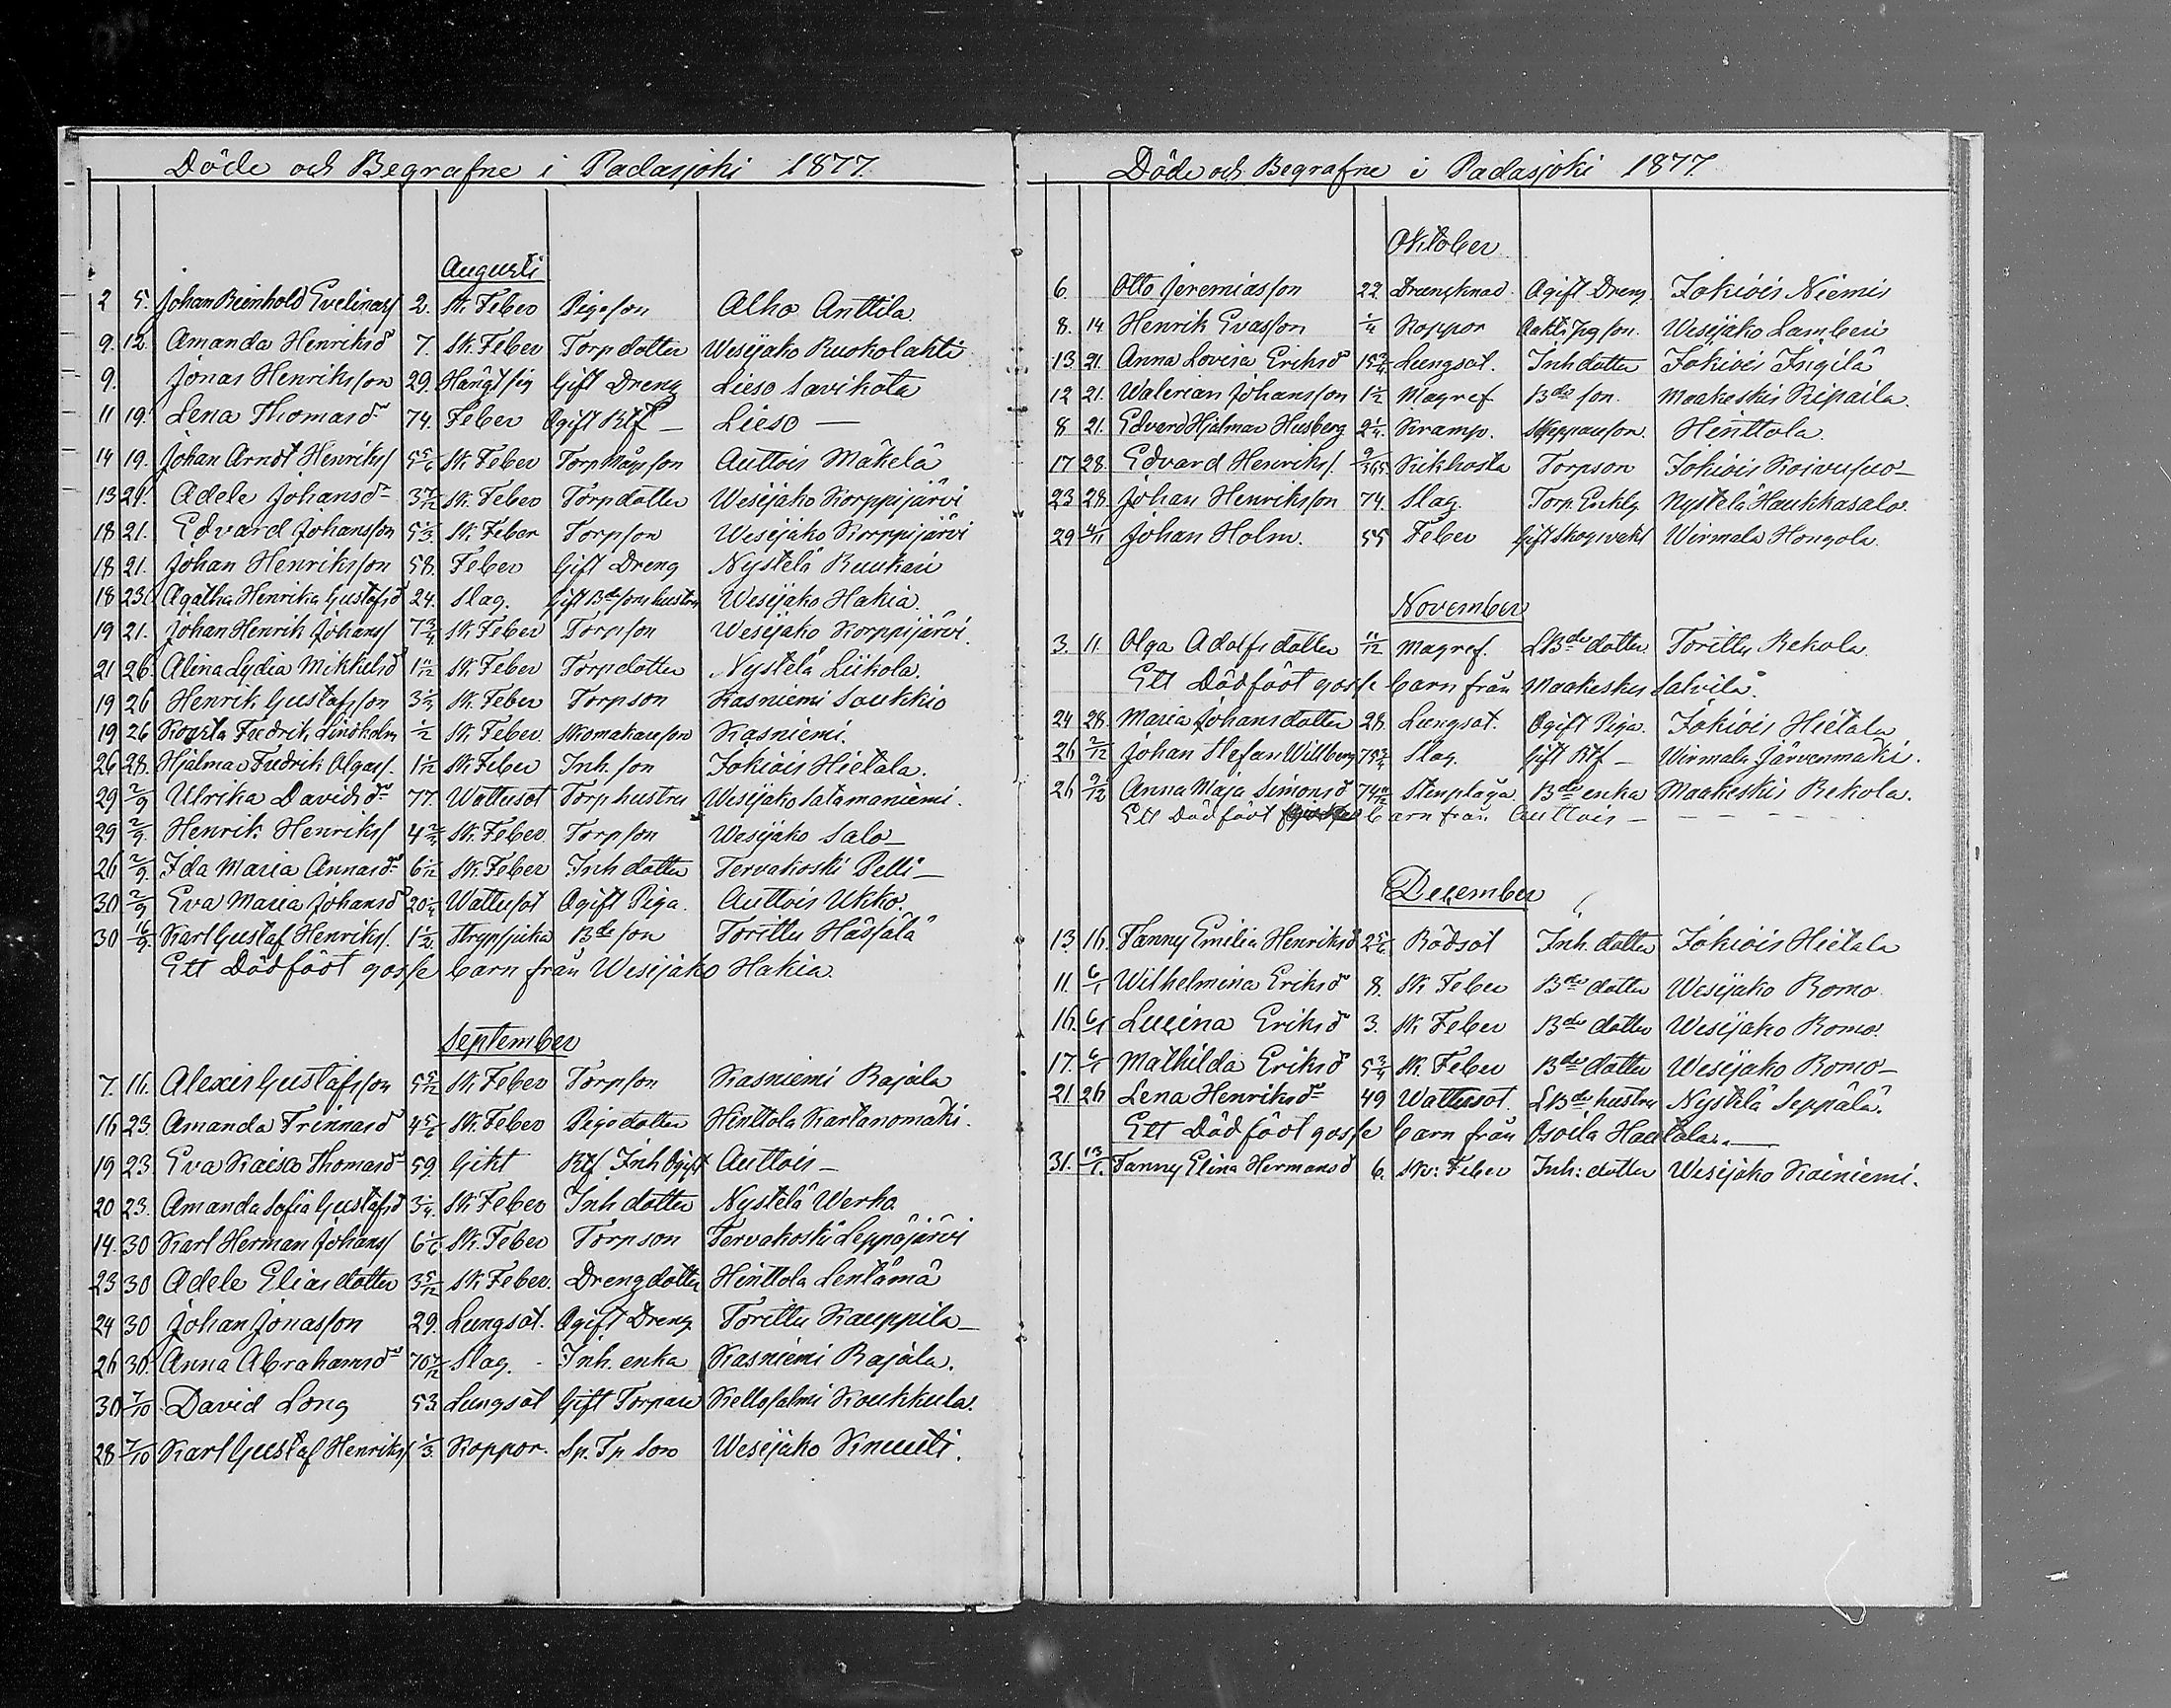 Döde och Begrafne i Padasjoki 1877.
Augusti
2 5. Johan Reinhold Evelinass 2. Sk. Feber Pigeson Alho Anttila
9. 12. Amanda Henriksd 7. Sk. Feber Torpdotter Wesijako Ruokolahti
9. Jonas Henriksson 29. Hängt sig Gift Dreng Lieso Savikota
11 19. Lena Thomasd 74. Feber Ogift Rtf – Lieso —
14 19. Johan Arndt Henrikss 5 5/6 Sk. Feber Torp Mågs son Auttois Mäkelä
13 29. Adele Johansd 3 7/12 Sk. Feber Torpdotter Wesijako Korppijärvi
18 21. Edvard Johansson 5 1/3 Sk. Feber Torpson Wesijako Korppijärvi
18 21. Johan Henriksson 58. Feber Gift Dreng Nystelä Ruukari
18 23. Agatha Henrika Gustafsd 24. Slag. Gift Bdesons hustru Wesijako Hakia.
19 21. Johan Henrik Johanss 7 3/4 Sk. Feber Torpson Wesijako Korppijärvi.
21 26. Alina Lydia Mikkelsd 1 11/12 Sk Feber Torpdotter Nystelä Liikola.
19 26 Henrik Gustafsson 3 1/2 Sk. Feber Torpson Kasniemi Soukkio
19 26 Kousta Fredrik Lindholm 1/2 Sk Feber. Skomakareson Kasniemi.
26 28. Hjalmar Fredrik Olgass. 1 1/12 Sk Feber Inh. son Jokiois Hietala.
29 2/9 Ulrika Davidsd 77. Wattusot Torphustru Wesijako Satamaniemi.
29 2/9. Henrik Henrikss 4 2/3 Sk. Feber Torpson Wesijako Salo–
26 2/9. Ida Maria Annasd 6 1/12 Sk. Feber Inh dotter Tervakoski Pelli–
30 2/9 Eva Maria Johansd 20 1/4 Wattusot Ogift Piga. Auttois Ukko.
30 16/9. Karl Gustaf Henrikss. 1 1/2. Strypsjuka Bdeson Torittu Hässälä
Ett Dödfödt gosse barn från Wesijako Hakia.
September
7. 16. Alexis Gustafsson 5 5/12 Sk Feber Torpson Kasniemi Rajala
16 23. Amanda Friinasd 4 5/6 Sk. Feber Pigodotter Hinttola Kartanomäki.
19 23 Eva Kaisa Thomasd 59. Gikt Rtf Inh Ogift Auttois –
20 23. Amanda Sofia Gustafsd 3 1/4. Sk Feber Inh dotter Nystelä Werho
14. 30 Karl Herman Johanss 6 1/6. Sk. Feber Torpson Tervakoski Leppäjärvi
23 30 Adele Eliasdotter 3 5/12 Sk Feber. Drengdotter Hinttola Lentämä
24 30 Johan Jonasson 29. Lungsot. Ogift Dreng Torittu Kauppila–
26 30. Anna Abrahamsd 70 7/12 Slag. Inh. enka Kasniemi Rajala.
30 7/10 David Long 53 Lungsot Gift Torpare Kellosalmi Koukkula.
28 7/10 Karl Gustaf Henrikss 1/3. Koppor. Sp. Tp. Son Wesijako Knuuti.
Döde och Begrafne i Padasjoki 1877
Oktober
6. Otto Jeremiasson 22. Drunknad Ogift Dreng. Jokiois Niemis
8. 14 Henrik Evasson 1/4 Koppor Wesijako Lamberi
13 21. Anna Lovisa Eriksd 15 3/4 Lungsot. Inh dotter Jokiois Ingilä
12 21. Walerian Johansson 1 1/2 Magref. Bde son. Maakeskis Ripaila.
8 21. Edvard Hjalmar Husberg 2 1/4. Kramp. Skeppareson. Hinttola.
17 28. Edvard Henrikss. 9/365. Kikhosta Torpson Jokiois Koivusuo–
23 28. Johan Henriksson 74. Slag. Torp. Enklg. Nystelä Haukkasalo
29 4/11 Johan Holm. 55 Feber Gift Skogvakt Wirmala Hongola.
November
3. 11. Olga Adolfsdotter 11/12 Magref. LBde dotter Torittu Rekola
Ett Dödfödt gosse barn från Maakeskis Salvila.
24 28. Maria Johansdotter 28. Lungsot. Ogift Piga. Jokiois Hietala
26 2/12 Johan Stefan Willberg 79 3/4 Slag. Gift Rtf – Wirmala Järvenmäki.
26 9/12 Anna Maja Simonsd 74 11/12 Stenplåga Bde enka Maakeskis Rekola.
Ett Dödfödt barn från Auttois – – – – – –
December
13. 16. Fanny Emilia Henriksd 2 5/6. Rödsot Inh. dotter Jokiois Hietala
11. 6/1 Wilhelmina Eriksd 8. Sk Feber Bde dotter Wesijako Romo.
16. 6/1 Lucina Eriksd 3. Sk Feber Bde dotter Wesijako Romo.
17. 6/1 Mathilda Eriksd 5 3/4 Sk. Feber Bde dotter Wesijako Romo–
21. 26 Lena Henriksd 49 Wattusot. LBde hustru Nystelä Seppälä.
Ett Dödfödt gosse barn från Osoila Hautala. —
31. 13/1. Fanny Elina Hermansd 6. Sk: Feber Inh: dotter Wesijako Kainiemi.